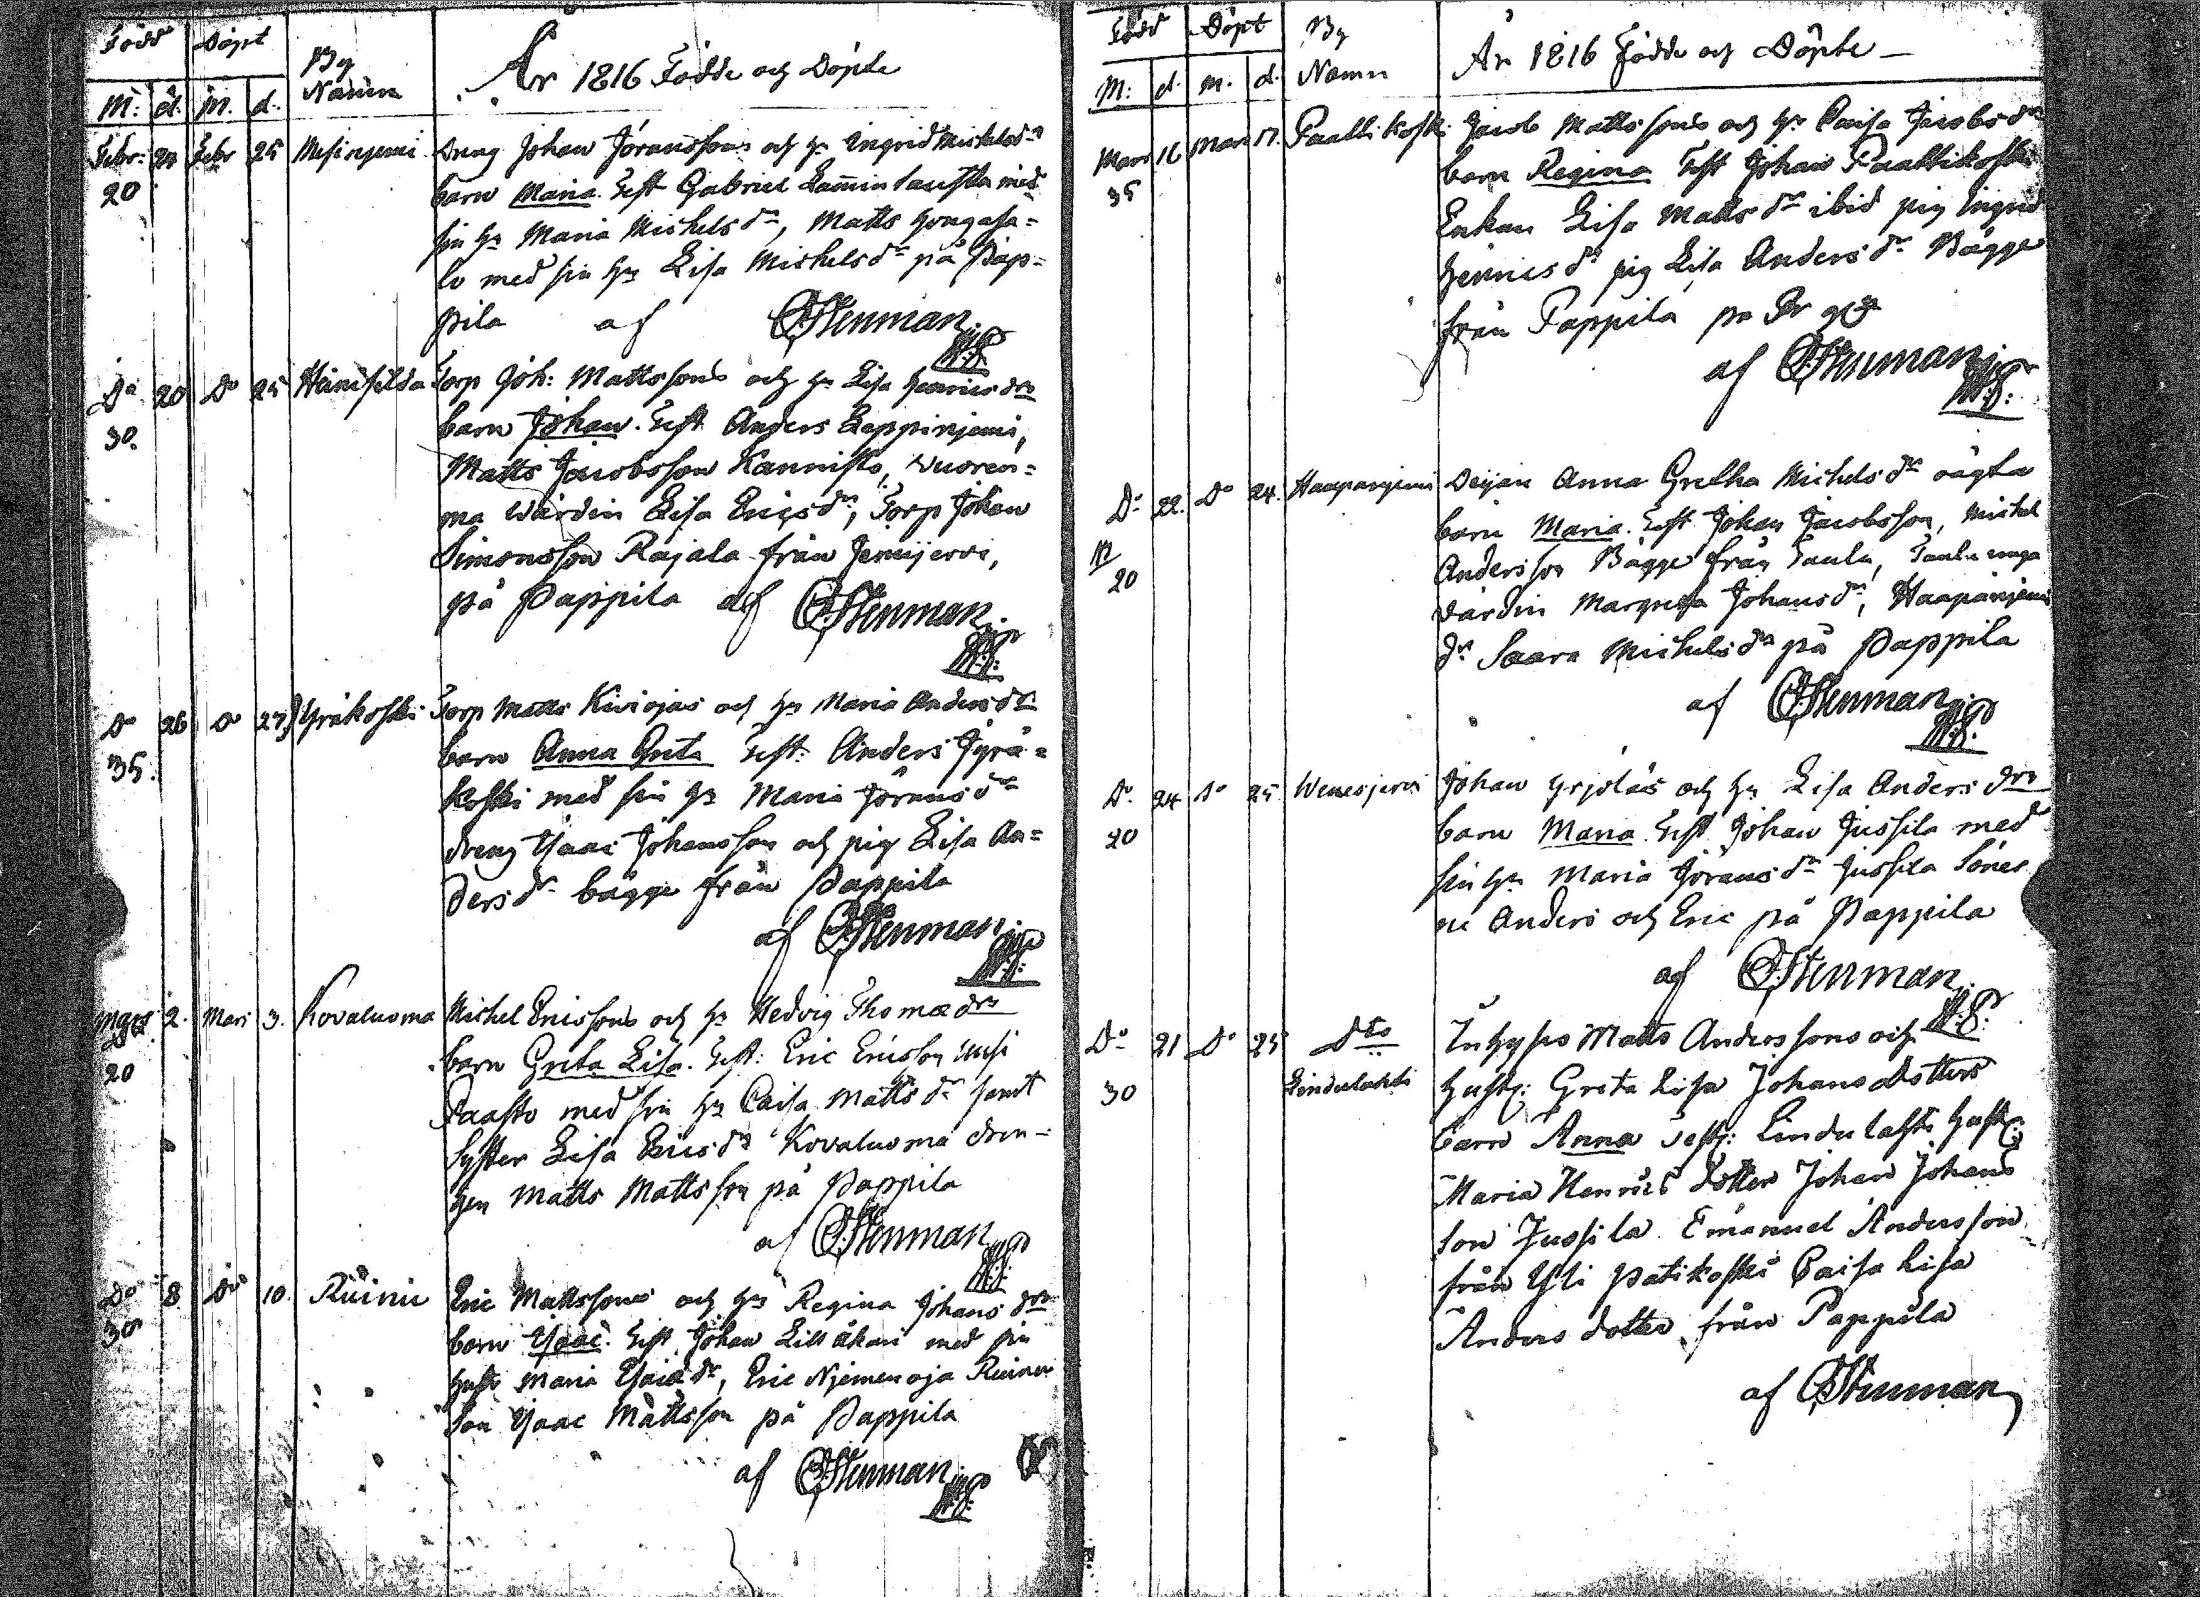 Född Döpt By Namn År 1816 Födde och Döpte
M: d. m. d.
Febr: 24 Febr 25 Mesinjemi Dreng Johan Jöranssons och H. Ingrid Michelsdr
20 barn Maria. Test Gabriel Lamminlausta med
sin H. Maria Michelsdr, Matts Hongasa=
lo med sin H. Lisa Michelsdr på Pap=
pila af CStenman
Do 20 Do 25 Heinisilda Torp Joh: Mattssons och H. Lisa Henricsdr
30. barn Johan. Test Anders Leppinjemi,
Matts Jacobsson Kannisto, Wuoren=
ma Wärdin Lisa Ericsdr, Torp Johan
Simonsson Rajala från Jemijervi,
på Pappila af CStenman
Do 26 Do 27 Jyräkoski Torp Matts Kiviojas och H. Maria Andersdr
35. barn Anna Greta Test: Anders Jyrä=
koski med sin H. Maria Jöransdr
dreng Isaac Johansson och pig Lisa An=
dersdr bägge från Pappila
af CStenman
Mars 2. Mars 3. Kovaluoma Michel Ericssons och H. Hedvig Thomædr
20 barn Greta Lisa. Test: Eric Ericsson Uusi
Paasto med sin H. Caisa Mattsdr samt
Syster Lisa Ericsdr Kovaluoma dren-
gen Matts Mattsson på Pappila
af CStenman
Do 8 Do 10. Riiinii Eric Mattssons och H. Regina Johansdr
30 barn Isaac. Test Johan Lill äkari med sin
Hustr Maria Isaicdr, Eric Njemenoja
Son Isaac Mattsson på Pappila
af CStenman
Född Döpt By Namn År 1816 Födde och Döpte –
M: d. m. d.
Mars 16 Mars 17. Paattikoski Jacob Mattssons och H. Caisa Jacobsdr
35 barn Regina Test Johan Paattikoski
Enkan Lisa Mattsdr ibid pig Ingrid
Henricsdr pig Lisa Andersdr Bägge
från Pappila
af CStenman
Do 22. Do 24. Haapanjemi Deijan Anna Gretha Michelsdr oägta
barn Maria. Test Johan Jacobsson, Michel
20 Andersson Bagge från Taulu,
Wärdin Margreta Johansdr, Haapanjemi
dr. Saara Michelsdr på Pappila
af CStenman
Do. 24 Do 25 Wenesjervi Johan Yrjoläs och H. Lisa Andersdr
20 barn Maria Test Johan Jussila med
sin H. Maria Jöransdr Jussila Söner
ne Anders och Eric på Pappila
af CStenman
Do 21 Do 25 Dto Inhyses Matts Anderssons och
30 Lindulahti Hustr: Greta Lisa Johans Dotters
barn Anna Test: Lindulahti Hustr:
Maria Henrics dotter Johan Johans
son Jussila Emanuel Andersson
från Yli Patikoski Caisa Lisa
Anders dotter från Pappila
af CStenman